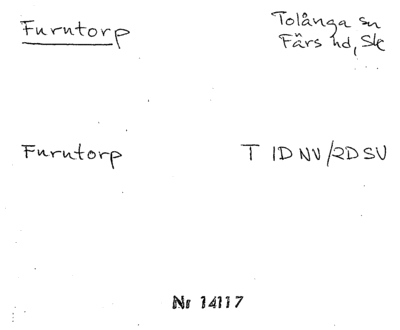 Furutorp
Tolånga sn
Färs hd, Sk
Furutorp
T 1D NV/2D SV
Nr 14117